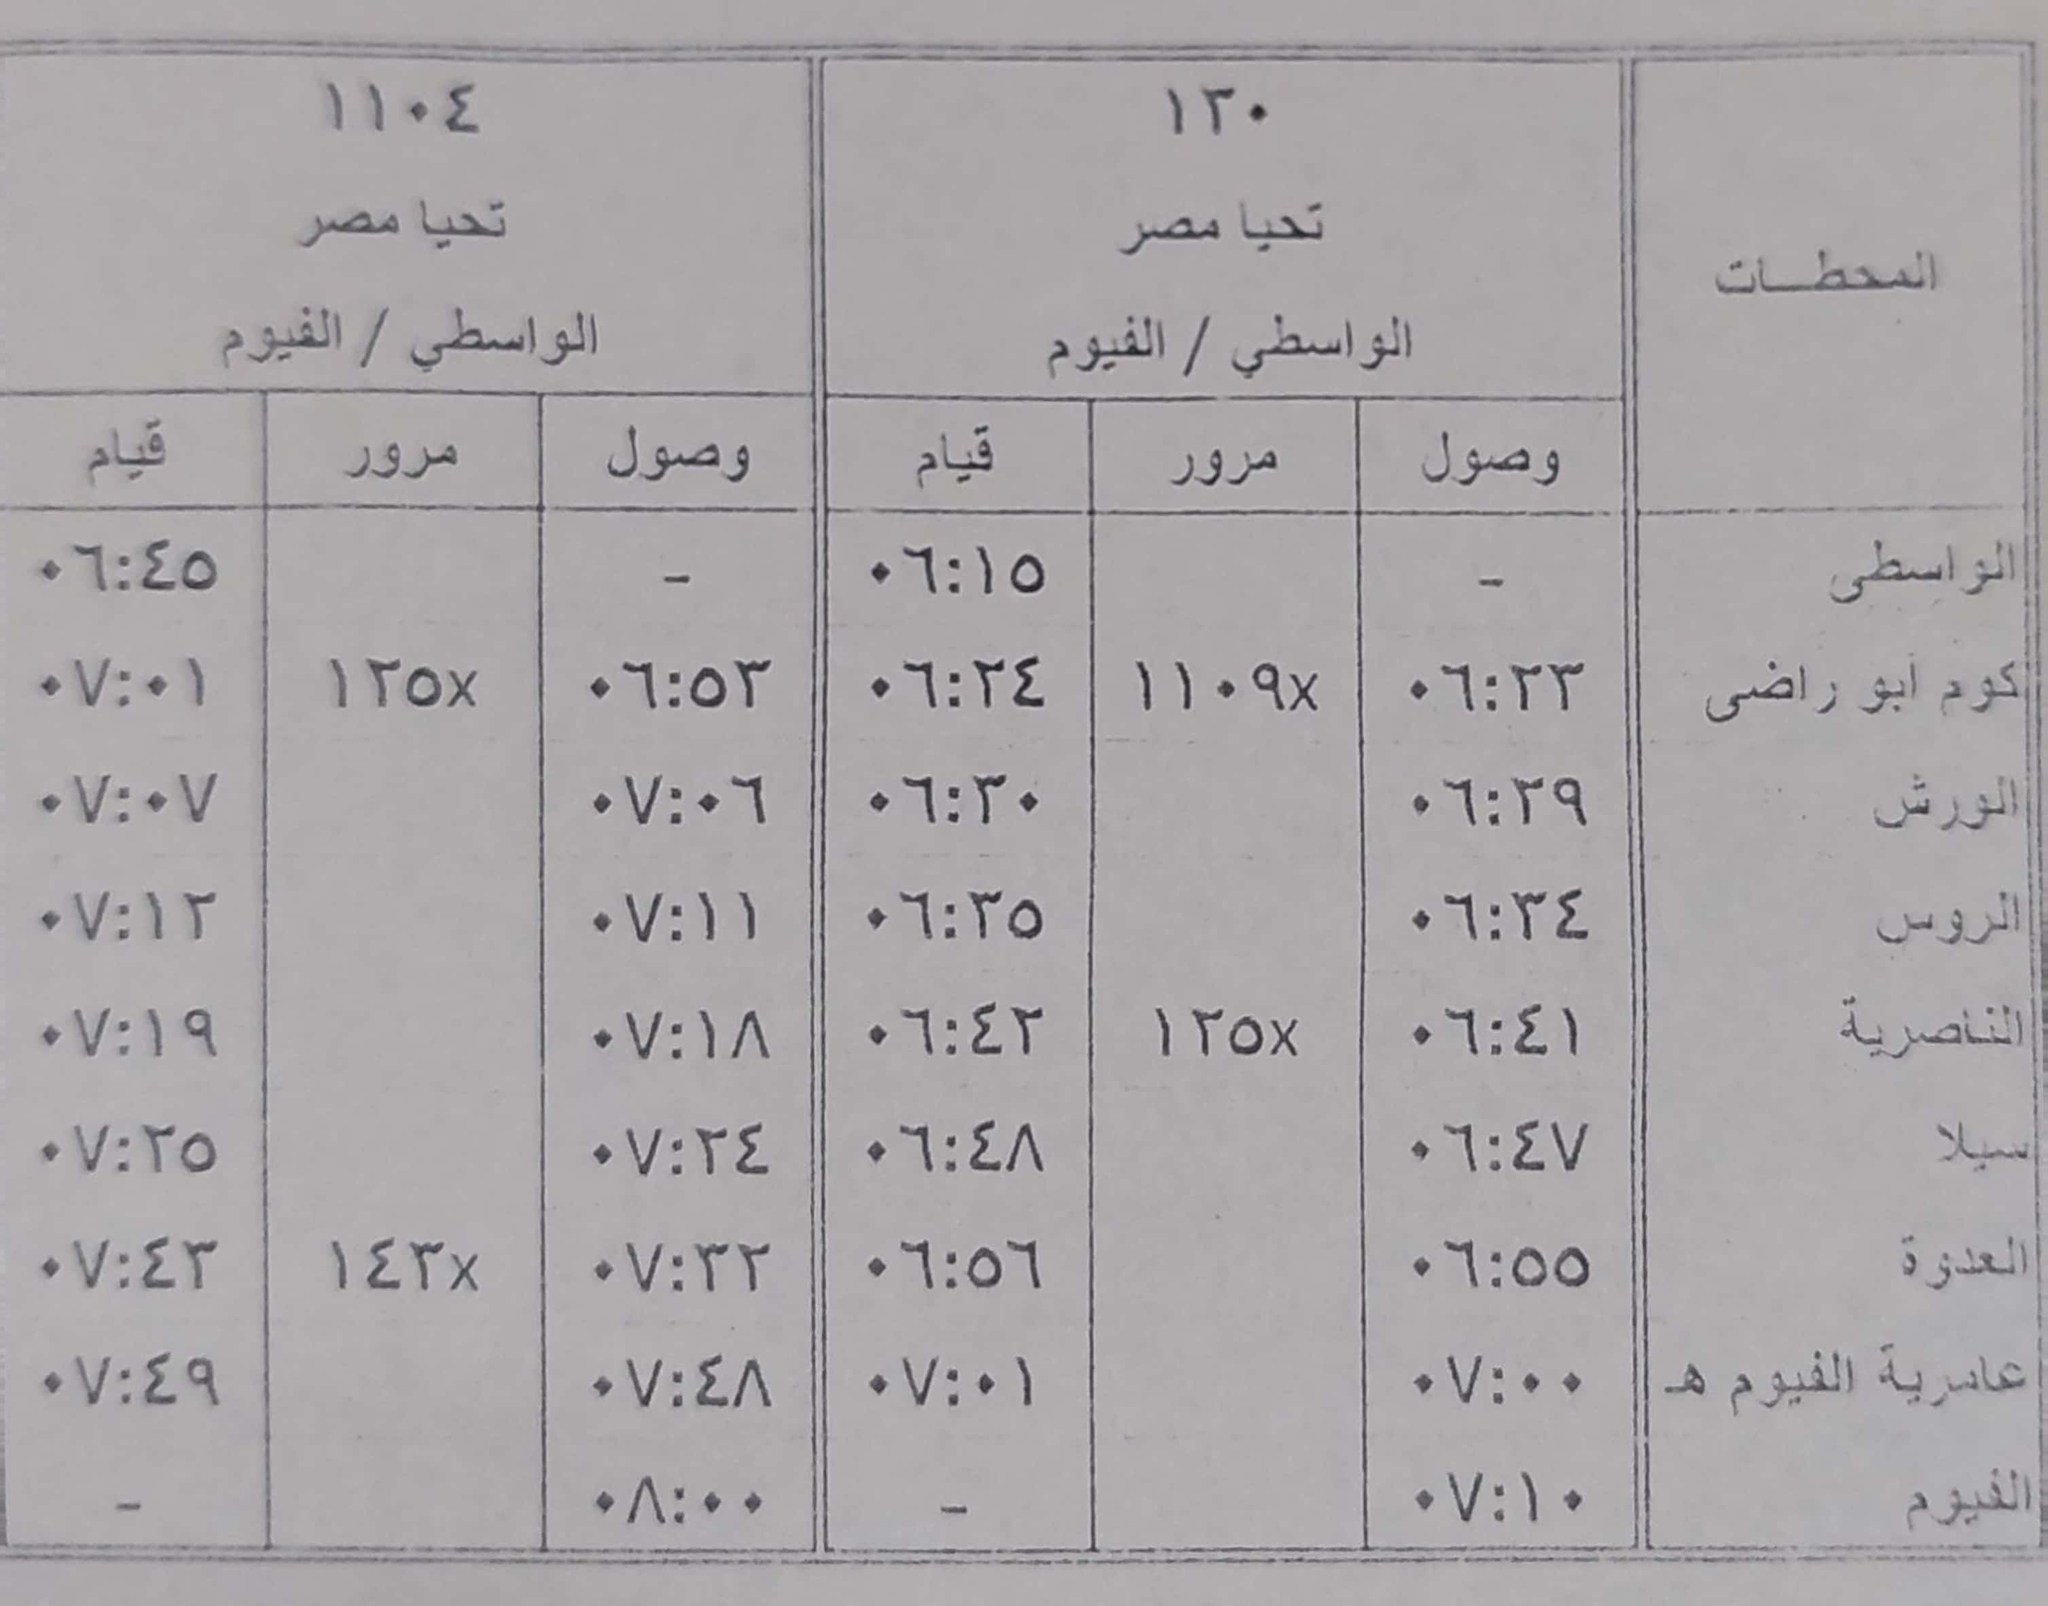 المحطات
١٣٠
تحيا مصر
الواسطي / الفيوم
١١٠٤
تحيا مصر
الواسطي / الفيوم
وصول مرور قيام وصول مرور قيام
الواسطى - ٠٦:١٥ - ٠٦:٤٥
كوم أبو راضى ٠٦:٢٣ ١١٠٩x ٠٦:٢٤ ٠٦:٥٣ ١٢٥x ٠٧:٠١
الورش ٠٦:٢٩ ٠٦:٣٠ ٠٧:٠٦ ٠٧:٠٧
الروس ٠٦:٣٤ ٠٦:٣٥ ٠٧:١١ ٠٧:١٢
الناصرية ٠٦:٤١ ١٢٥x ٠٦:٤٢ ٠٧:١٨ ٠٧:١٩
سيلا ٠٦:٤٧ ٠٦:٤٨ ٠٧:٢٤ ٠٧:٢٥
العدوة ٠٦:٥٥ ٠٦:٥٦ ٠٧:٣٢ ١٤٣x ٠٧:٤٣
عامرية الفيوم هـ ٠٧:٠٠ ٠٧:٠١ ٠٧:٤٨ ٠٧:٤٩
الفيوم ٠٧:١٠ - ٠٨:٠٠ -